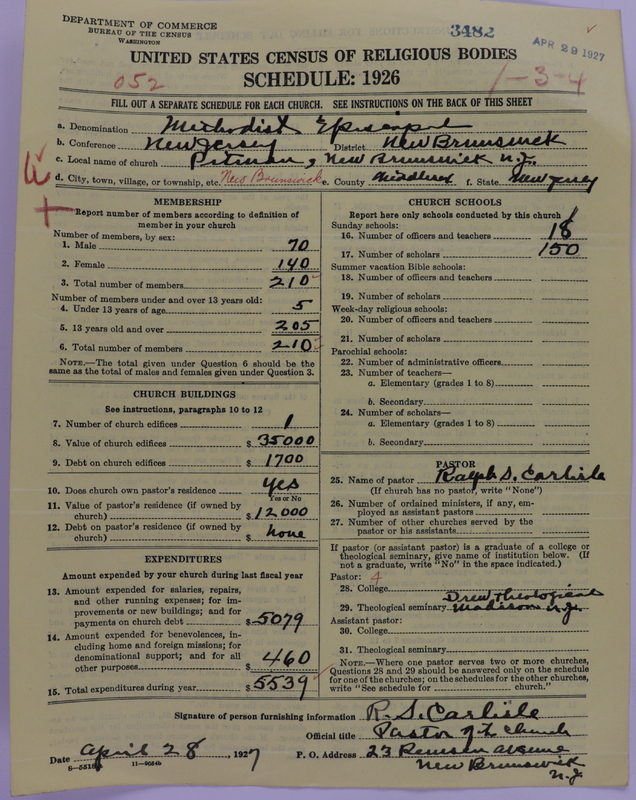 DEPARTMENT OF COMMERCE
BUREAU OF THE CENSUS
WASHINGTON
3482
APR 29 1927
UNITED STATES CENSUS OF RELIGIOUS BODIES
SCHEDULE: 1926
052
1-3-4
FILL OUT A SEPARATE SCHEDULE FOR EACH CHURCH. SEE INSTRUCTIONS ON THE BACK OF THIS SHEET
a. Denomination Methodist Episcopal
b. Conference New Jersey District New Brunswick
c. Local name of church Pitman, New Brunswick N.J.
d. City, town, village, or township, etc. New Brunswick e. County Middlesex f. State New Jersey
MEMBERSHIP
Report number of members according to definition of
member in your church
Number of members, by sex:
1. Male 70
2. Female 140
3. Total number of members 210
Number of members under and over 13 years old:
4. Under 13 years of age 5
5. 13 years old and over 205
6. Total number of members 210
NOTE.—The total given under Question 6 should be
same as the total of males and females given under Question 3.
CHURCH BUILDINGS
See instructions, paragraphs 10 to 12
7. Number of church edifices 1
8. Value of church edifices $ 35000
9. Debt on church edifices $ 1700
10. Does church own pastor's residence yes
Yes or No
11. Value of pastor's residence (if owned by
church) $ 12000
12. Debt on pastor's residence (if owned by
church) $ none
EXPENDITURES
Amount expended by your church during last fiscal year
13. Amount expended for salaries, repairs,
and other running expenses; for im-
provements or new buildings; and for
payments on church debt $ 5079
14. Amount expended for benevolences, in-
cluding home and foreign missions; for
denominational support; and for all
other purposes $ 460
15. Total expenditures during year $ 5539
CHURCH SCHOOLS
Report here only schools conducted by this church
Sunday schools:
16. Number of officers and teachers 18
17. Number of scholars 150
Summer vacation Bible schools:
18. Number of officers and teachers
19. Number of scholars
Week-day religious schools:
20. Number of officers and teachers
21. Number of scholars
Parochial schools:
22. Number of administrative officers
23. Number of teachers—
a. Elementary (grades 1 to 8)
b. Secondary
24. Number of scholars—
a. Elementary (grades 1 to 8)
b. Secondary
PASTOR
25. Name of pastor Ralph S. Carlisle
(If church has no pastor, write "None")
26. Number of ordained ministers, if any, em-
ployed as assistant pastors
27. Number of other churches served by the
pastor or his assistants
If pastor (or assistant pastor) is a graduate of a college or
theological seminary, give name of institution below. (If
not a graduate, write "No" in the space indicated.)
Pastor: 4
28. College
Drew Theological
29. Theological seminary Madison N.J.
Assistant pastor:
30. College
31. Theological seminary
NOTE.—Where one pastor serves two or more churches,
Questions 28 and 29 should be answered only on the schedule
for one of the churches; on the schedules for the other churches,
write "See schedule for church."
Signature of person furnishing information R. S. Carlisle
Official title Pastor of the church
Date April 28, 1927 P. O. Address 23 Remsen Avenue
New Brunswick
N.J.
11-9054b